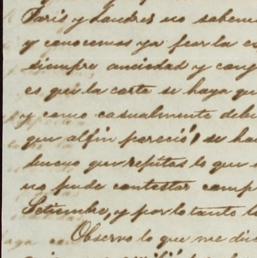 Paris y Landres no sabem
y conocemos ya fear la es
siempre anciedad y cong
es que la carta se haya qu
y como casualmente debi
que alfin pareció, se ha
bueno que repitas lo que
no pude contestar camp
Setiembre, y por lo tanto l
Observo lo que me dic